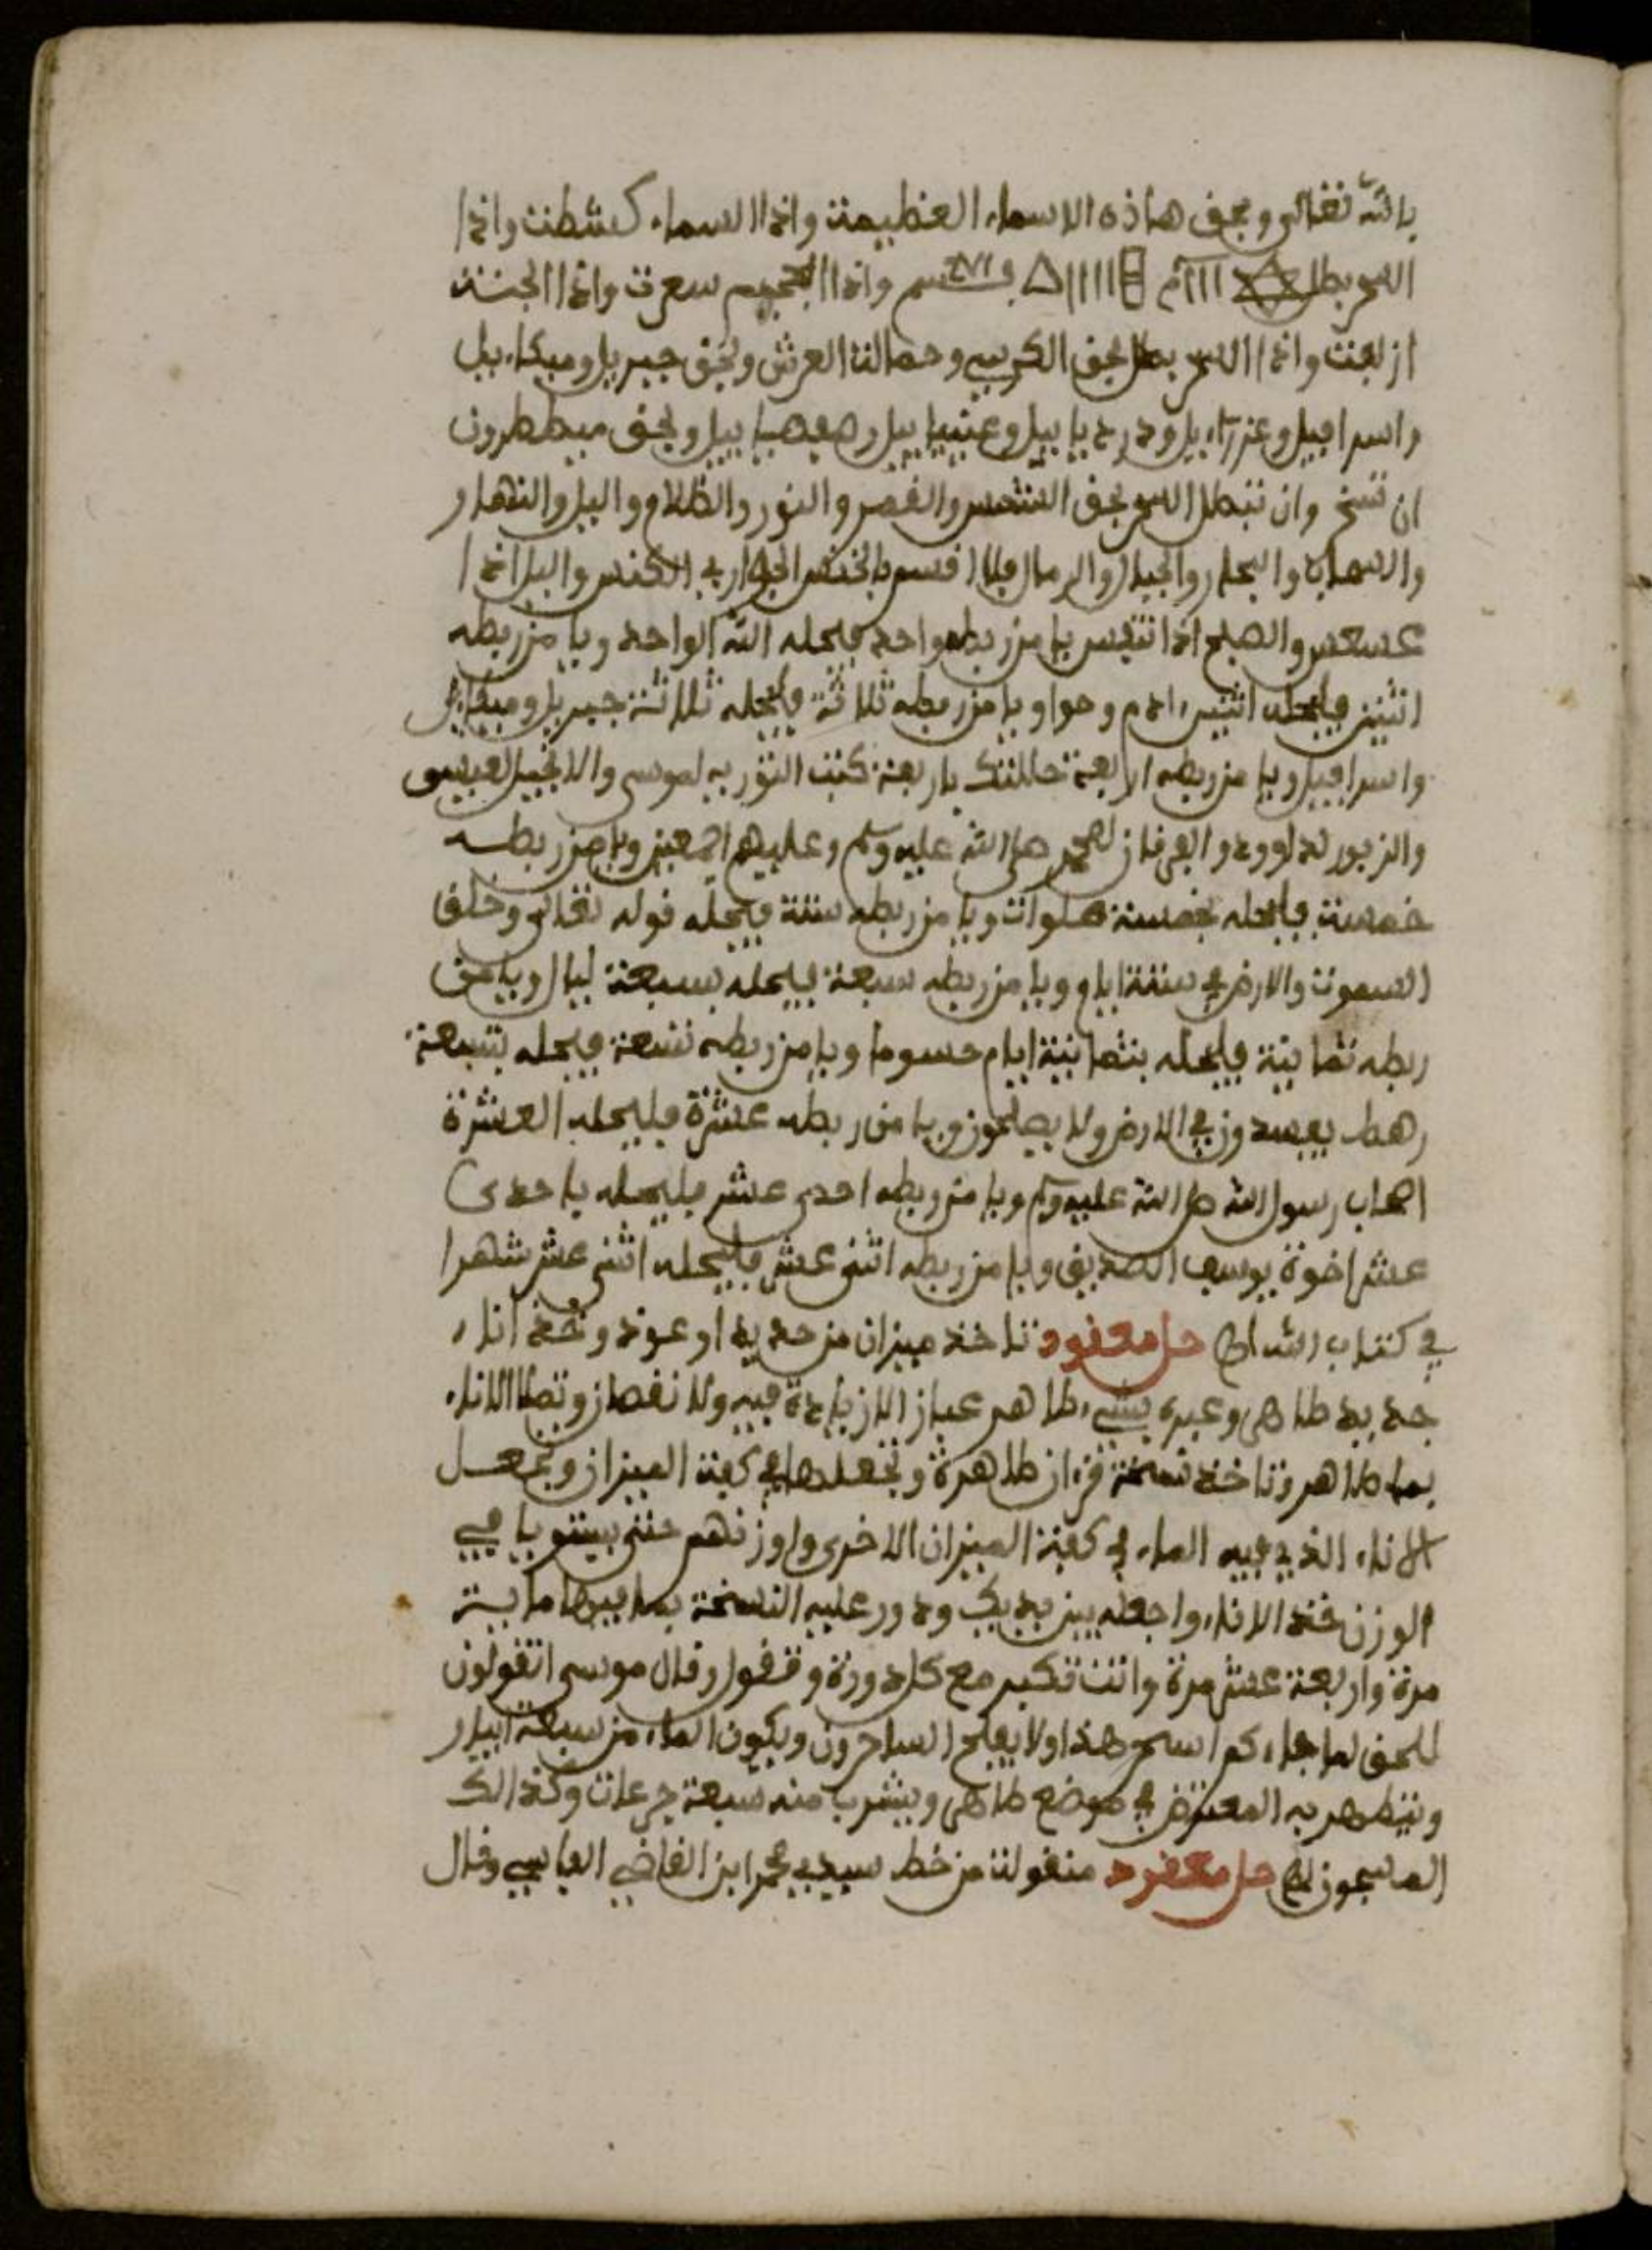 بالله تعالى وبحق هاذه الاسماء العظيمة واذا السماء كشطت واذا
السحر بطل واذا الجحيم سعرت واذا الجنة
ازلفت واذا السحر بطل بحق الكرسي وحمالة العرش وبحق جبريل وميكاءيل
واسرافيل وعزراءيل ودرديابيل وبحق ميططرون
ان تنسخ وان تبطل السحر بحق الشمس والقمر والنور والظلام واليل والنهار
والسحاب والبحار والجبال والرمال فلا اقسم بالخنس الجوار الكنس واليل اذا
عسعس والصبح اذا تنفس يا من ربطه واحد فليحله الله الواحد ويا من ربطه
اثنين فليحله اثنين ادم وحوا ويا من ربطه ثلاثة فليحله ثلاثة جبريل وميكاءيل
واسرافيل ويا من ربطه اربعة حاللتك باربعة كتب التورية لموسى والانجيل لعيسى
والزبور لداوود والفرفان لمحمد صلى الله عليه وسلم وعليهم اجمعين ويا من ربطه
خمسة فليحله بخمسة صلوات ويا من ربطه ستة فيحله قوله تعالى وخلق
السموت والارض في ستة ايام ويا من ربطه سبعة فليحله بسبعة ليال ويا من
ربطه ثمانية فليحله بثمانية ايام حسوما ويا من ربطه تسعة فيحله بتسعة
رهط يفسدون في الارض ولا يصلحون ويا من ربطه عشرة فليحله العشرة
اصحاب رسول الله صلى الله عليه وسلم ويا من ربطه احدى عشر فليحله باحدى
عشر اخوة يوسف الصديق ويا من ربطه اثنى عشر فليحله اثنى عشر شهرا
في كتاب الله حل معقود تاخذ ميزان من حديد او عود وخذ اناء
جديد طاهر وعبره بشيء طاهر عيار لا زيادة فيه ولا نقصان وتملا الاناء
بماء طاهر وتاخذ نسخة قرءان طاهرة وتجعلها في كفة الميزان وتجعل
الاناء الذي فيه الماء في كفة الميزان الاخرى واوزنهم حتى يستويا في
الوزن فخذ الاناء واجعله بين يديك ودور عليه النسخة بما فيها ماية
مرة واربعة عشر مرة وانت تكبر مع كل دورة وتقول وقال موسى اتقولون
للحق لما جاءكم اسحر هذا ولا يفلح الساحرون ويكون الماء من سبعة ابيار
ويتطهر به المعترض في موضع طاهر ويشرب منه سبعة جرعات وكذالك
المسجون حل معقود منقولة من خط سيدي محمد ابن القاضي الفاسي وقال